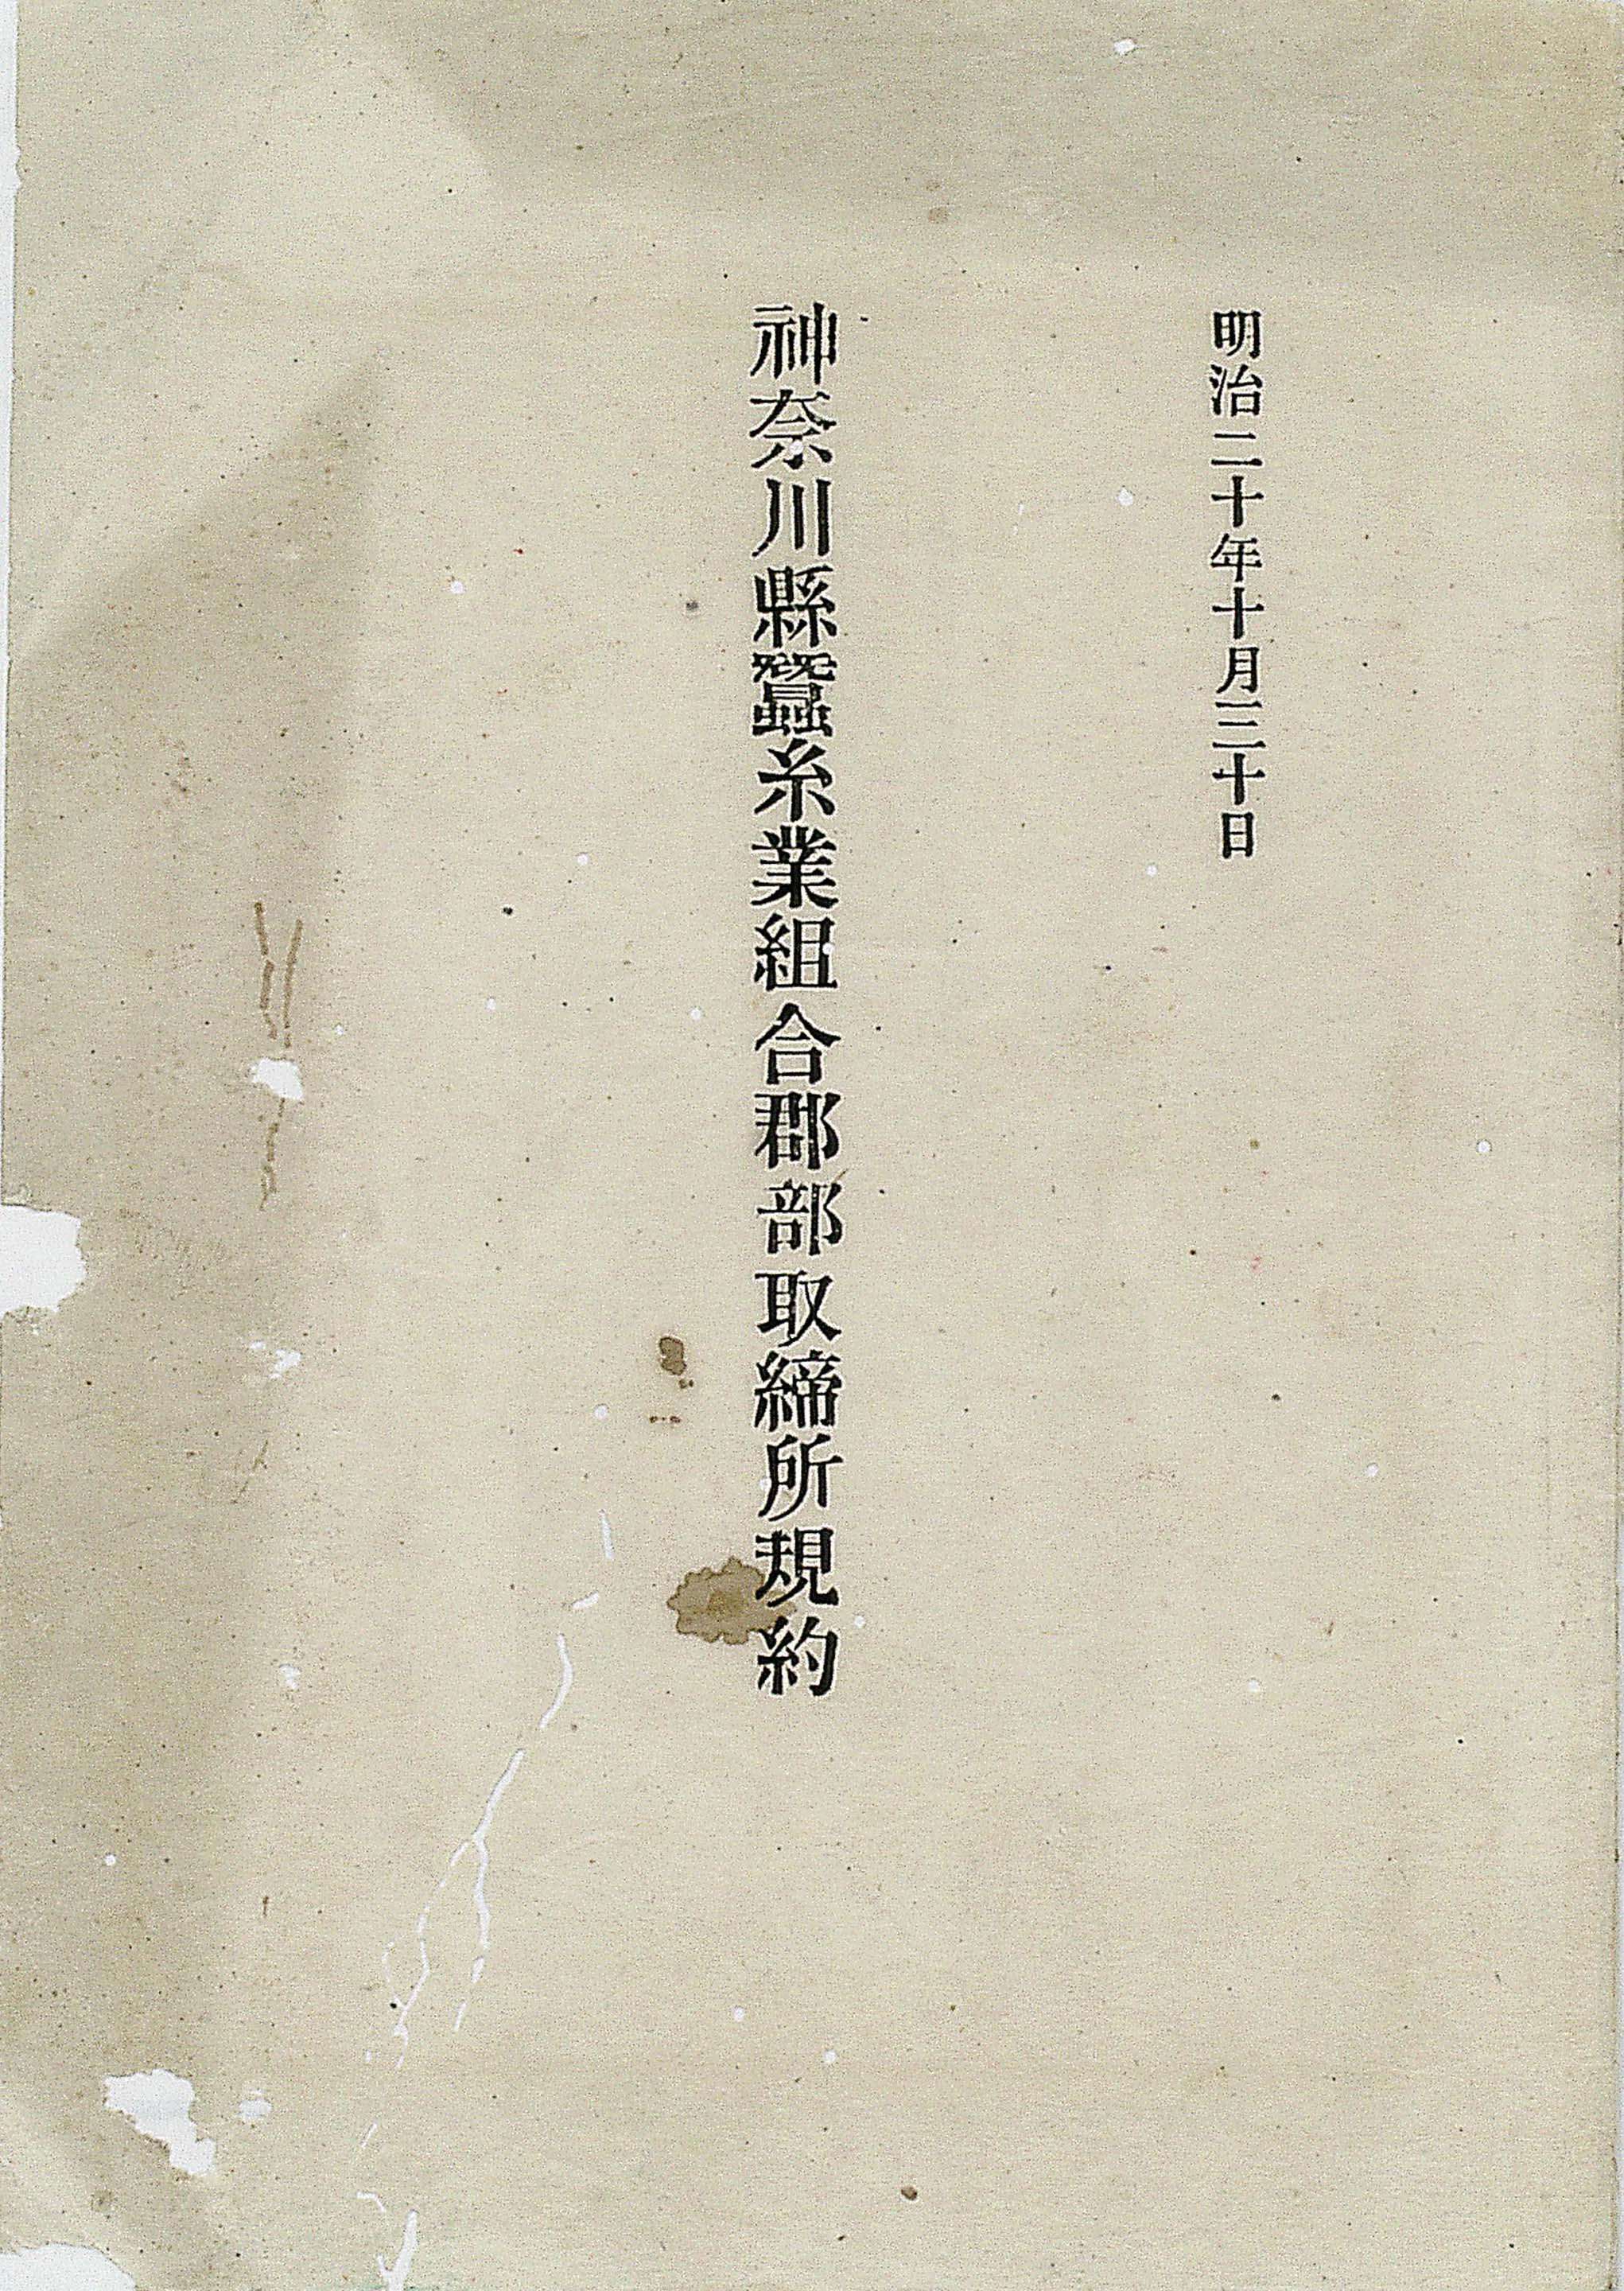 明治二十年十月三十日
神奈川縣蠶糸業組合郡部取締所規約